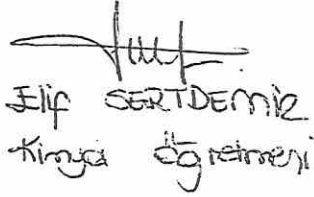 Elif SERTDEMİR
Kimya Öğretmeni